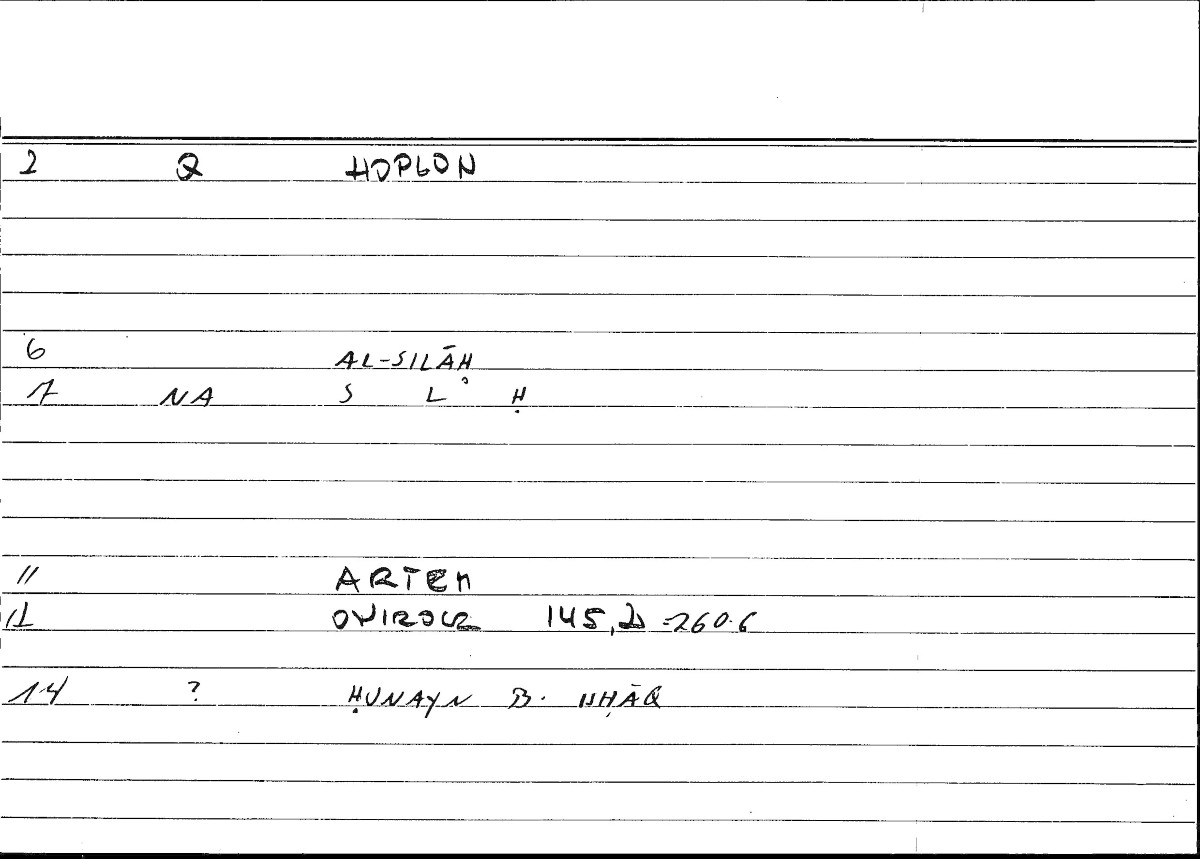 2 Q HOPLON
6 AL-SILĀḤ
7 NA S L Ḥ
11 ARTEM
12 ONIROCR 145,2 =260.6
14 ? ḤUNAYN B. ISḤĀQ